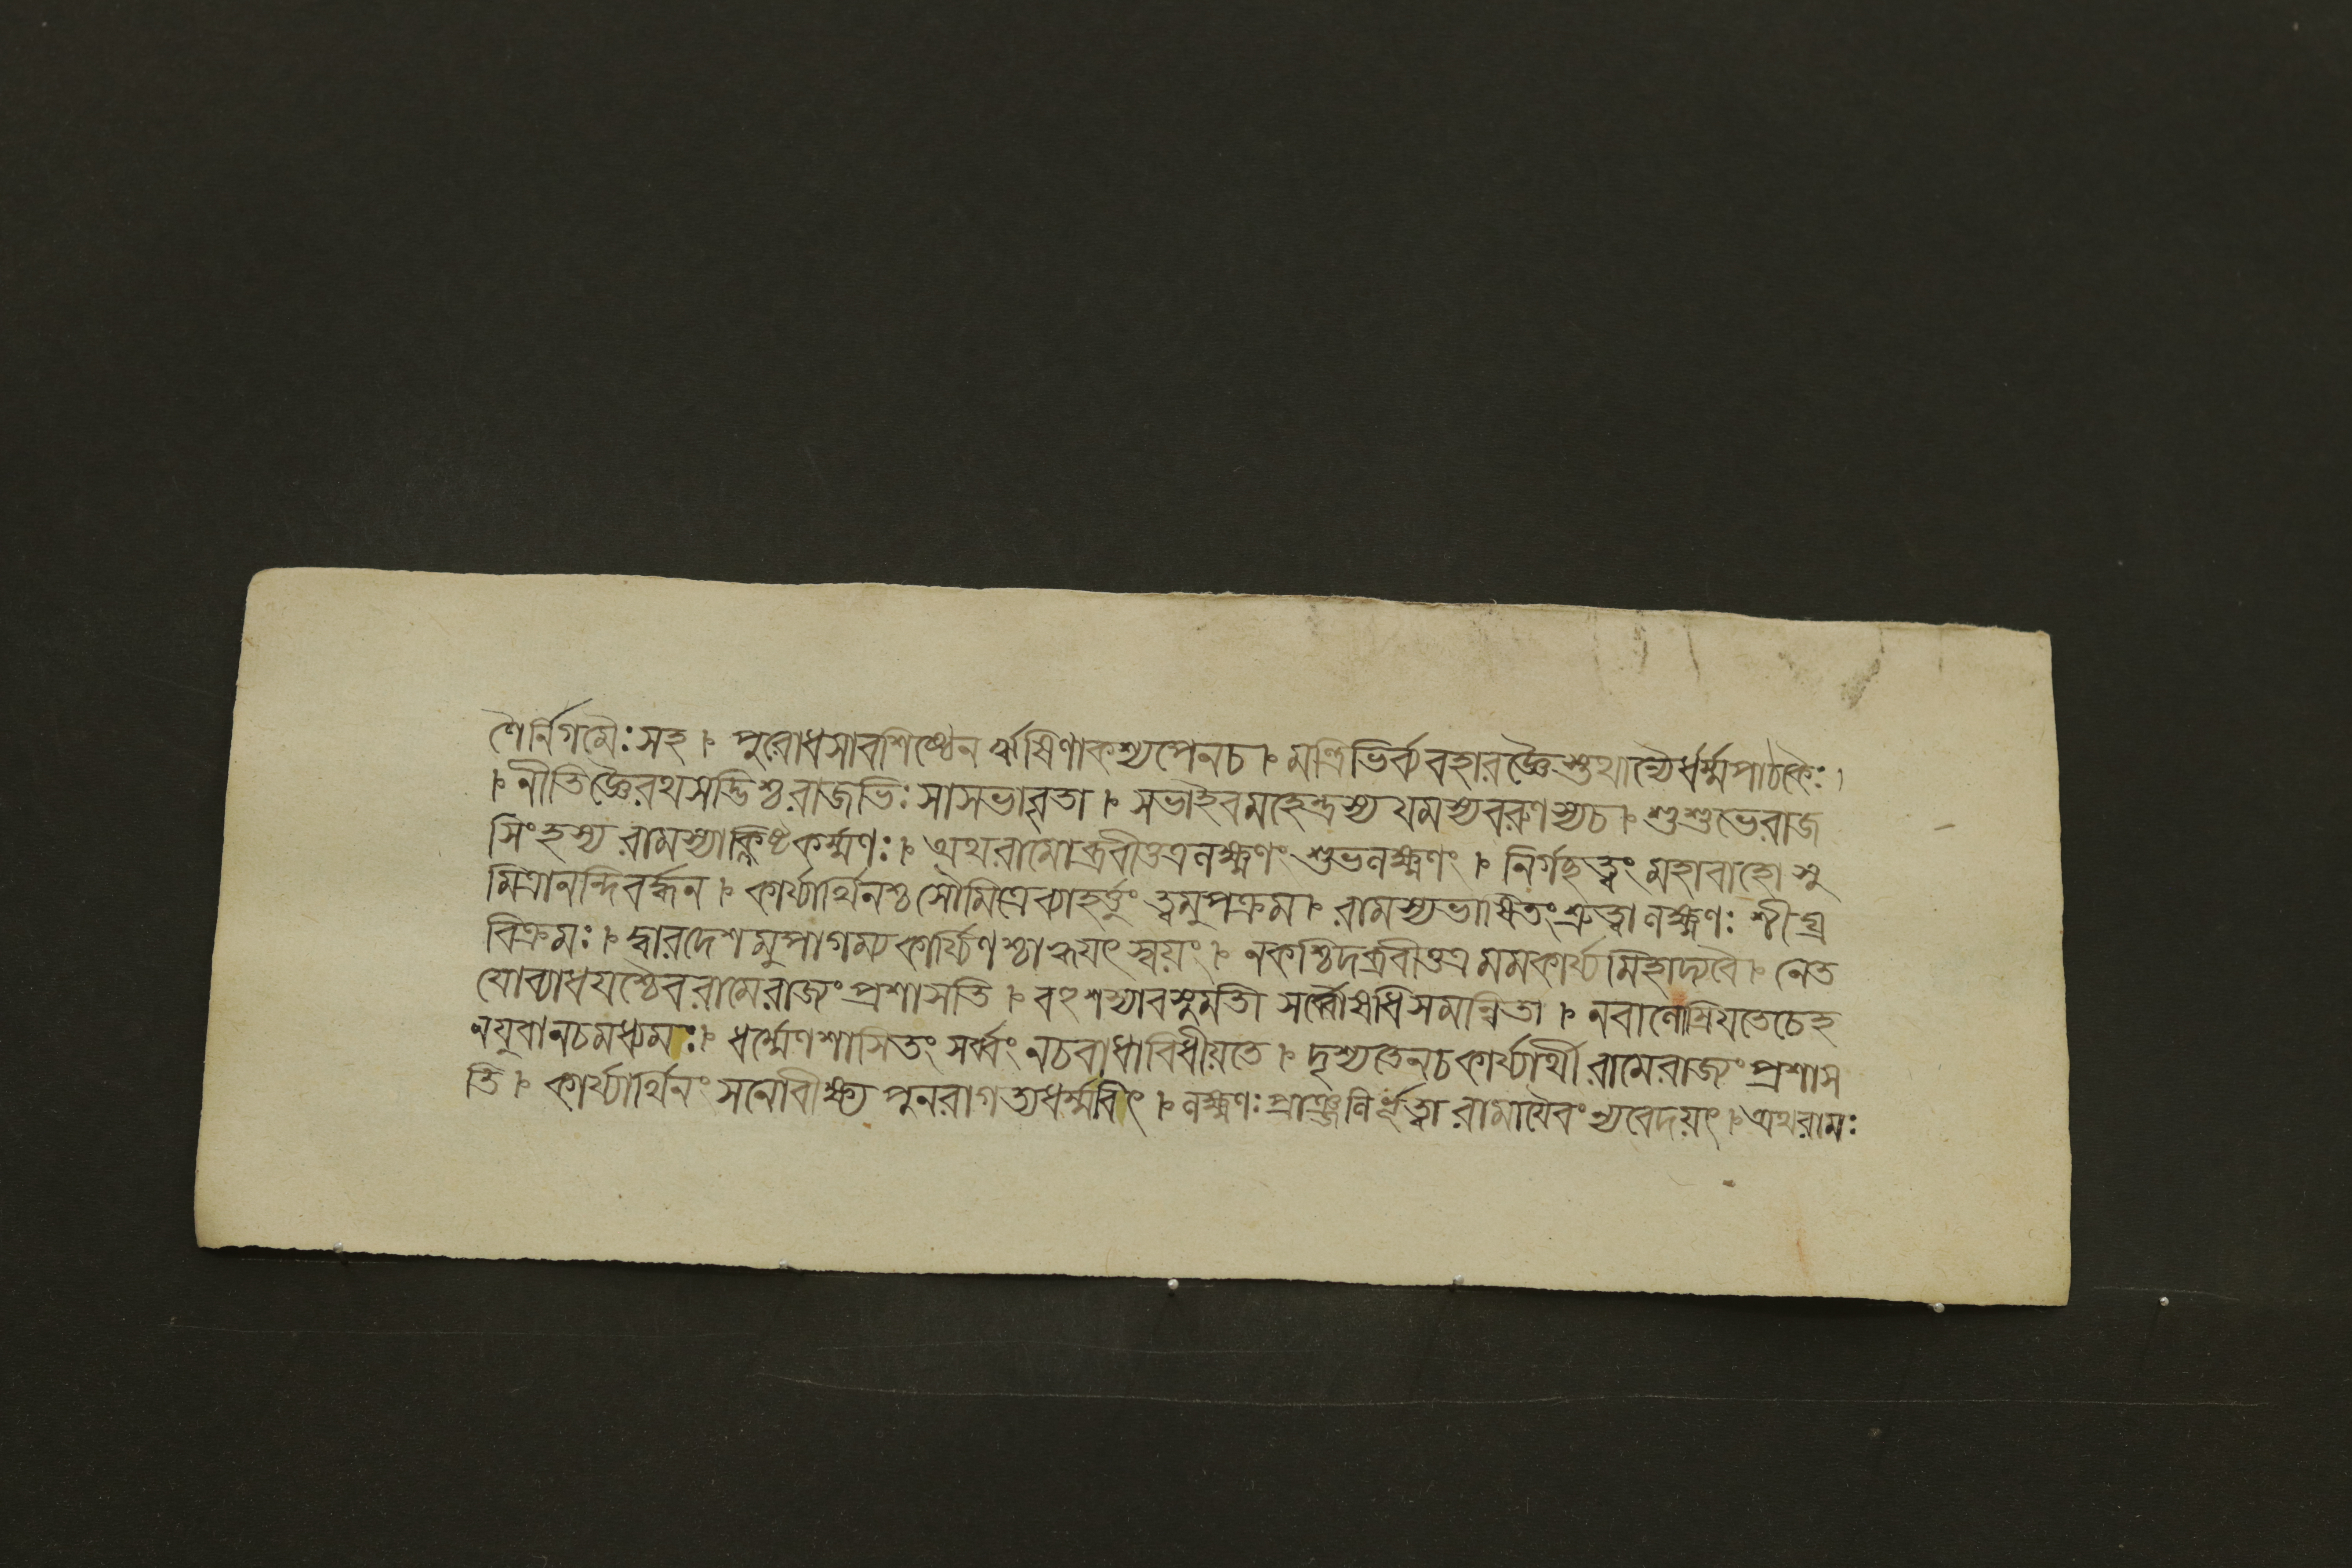 ণৈর্নিগমৈঃ সহ । পুরোধসাবশিষ্ঠেন ঋষিণাকশ্যপেনচ । মন্ত্রিভির্ব্যবহারজ্ঞৈস্তথান্যৈর্ধর্ম্মপাঠকৈঃ
। নীতিজ্ঞৈরথসদ্ভিশ্চরাজভিঃ সাসভাবৃতা । সভাইবমহেন্দ্রস্য যমস্যবরুণস্যচ । শুশুভেরাজ
সিংহস্য রামস্যাক্লিষ্টকর্ম্মণঃ । অথরামোব্রবীত্তত্রলক্ষ্মণং শুভলক্ষ্মণং । নির্গচ্ছত্বং মহাবাহো সু
মিত্রানন্দিবর্দ্ধন । কার্য্যার্থিনশ্চ সৌমিত্রেব্যাহর্ত্তুং ত্বমুপক্রম । রামস্যভাষিতংশ্রুত্বা লক্ষ্মণঃ শীঘ্র
বিক্রমঃ । দ্বারদেশমুপাগম্য কার্য্যিণশ্চাহ্বয়ৎ স্বয়ং । নকশ্চিদব্রবীত্তত্র মমকার্য্যমিহাদ্যবৈ । নেত
যোব্যাধয়শ্চৈব রামেরাজ্যংপ্রশাসতি । বহুশস্যাবসুমতী সর্ব্বৌষধিসমন্বিতা । নবালোম্রিয়তেচেহ
নযুবানচমধ্যমঃ । ধর্ম্মেণশাসিতং সর্ব্বং নচবাধাবিধীয়তে । দৃশ্যতেনচকার্য্যার্থী রামেরাজ্যংপ্রশাস
তি । কার্য্যার্থিনং সনোবীক্ষ্য পুনরাগত্যধর্ম্মবিৎ । লক্ষ্মণঃ প্রাঞ্জলির্ভূত্বা রামায়ৈবংন্যবেদয়ৎ । অথরামঃ